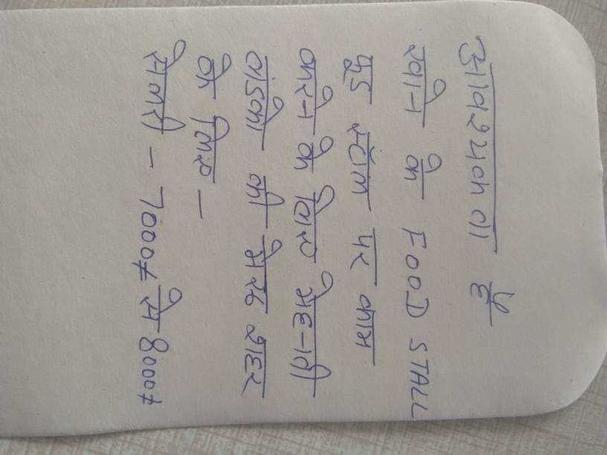 आवश्यकता है
खाने के FOOD STALL
फूड स्टाल पर काम
करने के लिए मेहनती
लडंको की मेरठ शहर
के लिए -
सेलरी - 7000₹ से 8000₹